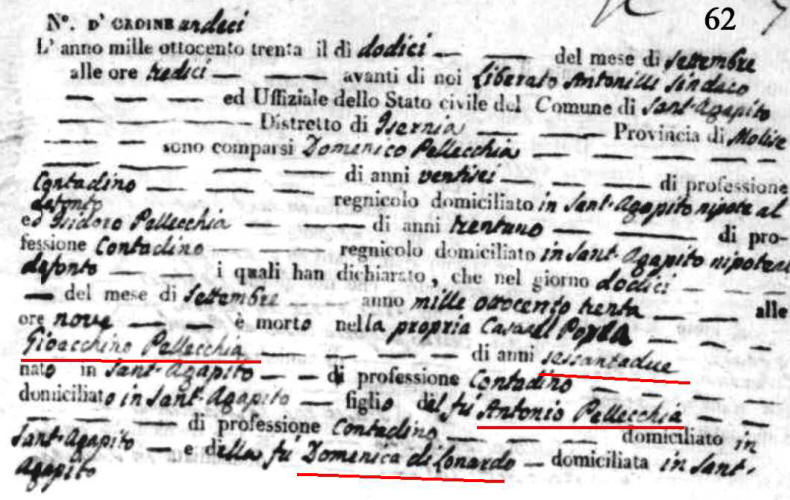 62
N°. D' ORDINE undeci
L' anno mille ottocento trenta il di dodici — — del mese di Settembre
alle ore tredici — — avanti di noi Liberato Antonilli Sindaco
— — — ed Uffiziale dello Stato civile del Comune di Sant-Agapito
— — — Distretto di Isernia — — — Provincia di Molise
— — — sono comparsi Domenico Pellecchia — — —
— — — di anni ventisei — — — di professione
Contadino — — — regnicolo domiciliato in Sant-Agapito nipote al
defonto
ed Isidoro Pellecchia — — — di anni trentuno — — di pro-
fessione Contadino — — — regnicolo domiciliato in Sant-Agapito nipote al
defonto — — i quali han dichiarato, che nel giorno dodici — —
— del mese di Settembre — — anno mille ottocento trenta — — alle
ore nove — — è morto nella propria Casa — — —
Gioacchino Pellecchia — — — di anni sessantadue
nato in Sant-Agapito — — di professione Contadino — — —
domiciliato in Sant-Agapito — figlio del fù Antonio Pellecchia — —
— — — di professione Contadino — — — domiciliato in
Sant-Agapito — e della fù Domenica di Lonardo — domiciliata in Sant-
Agapito